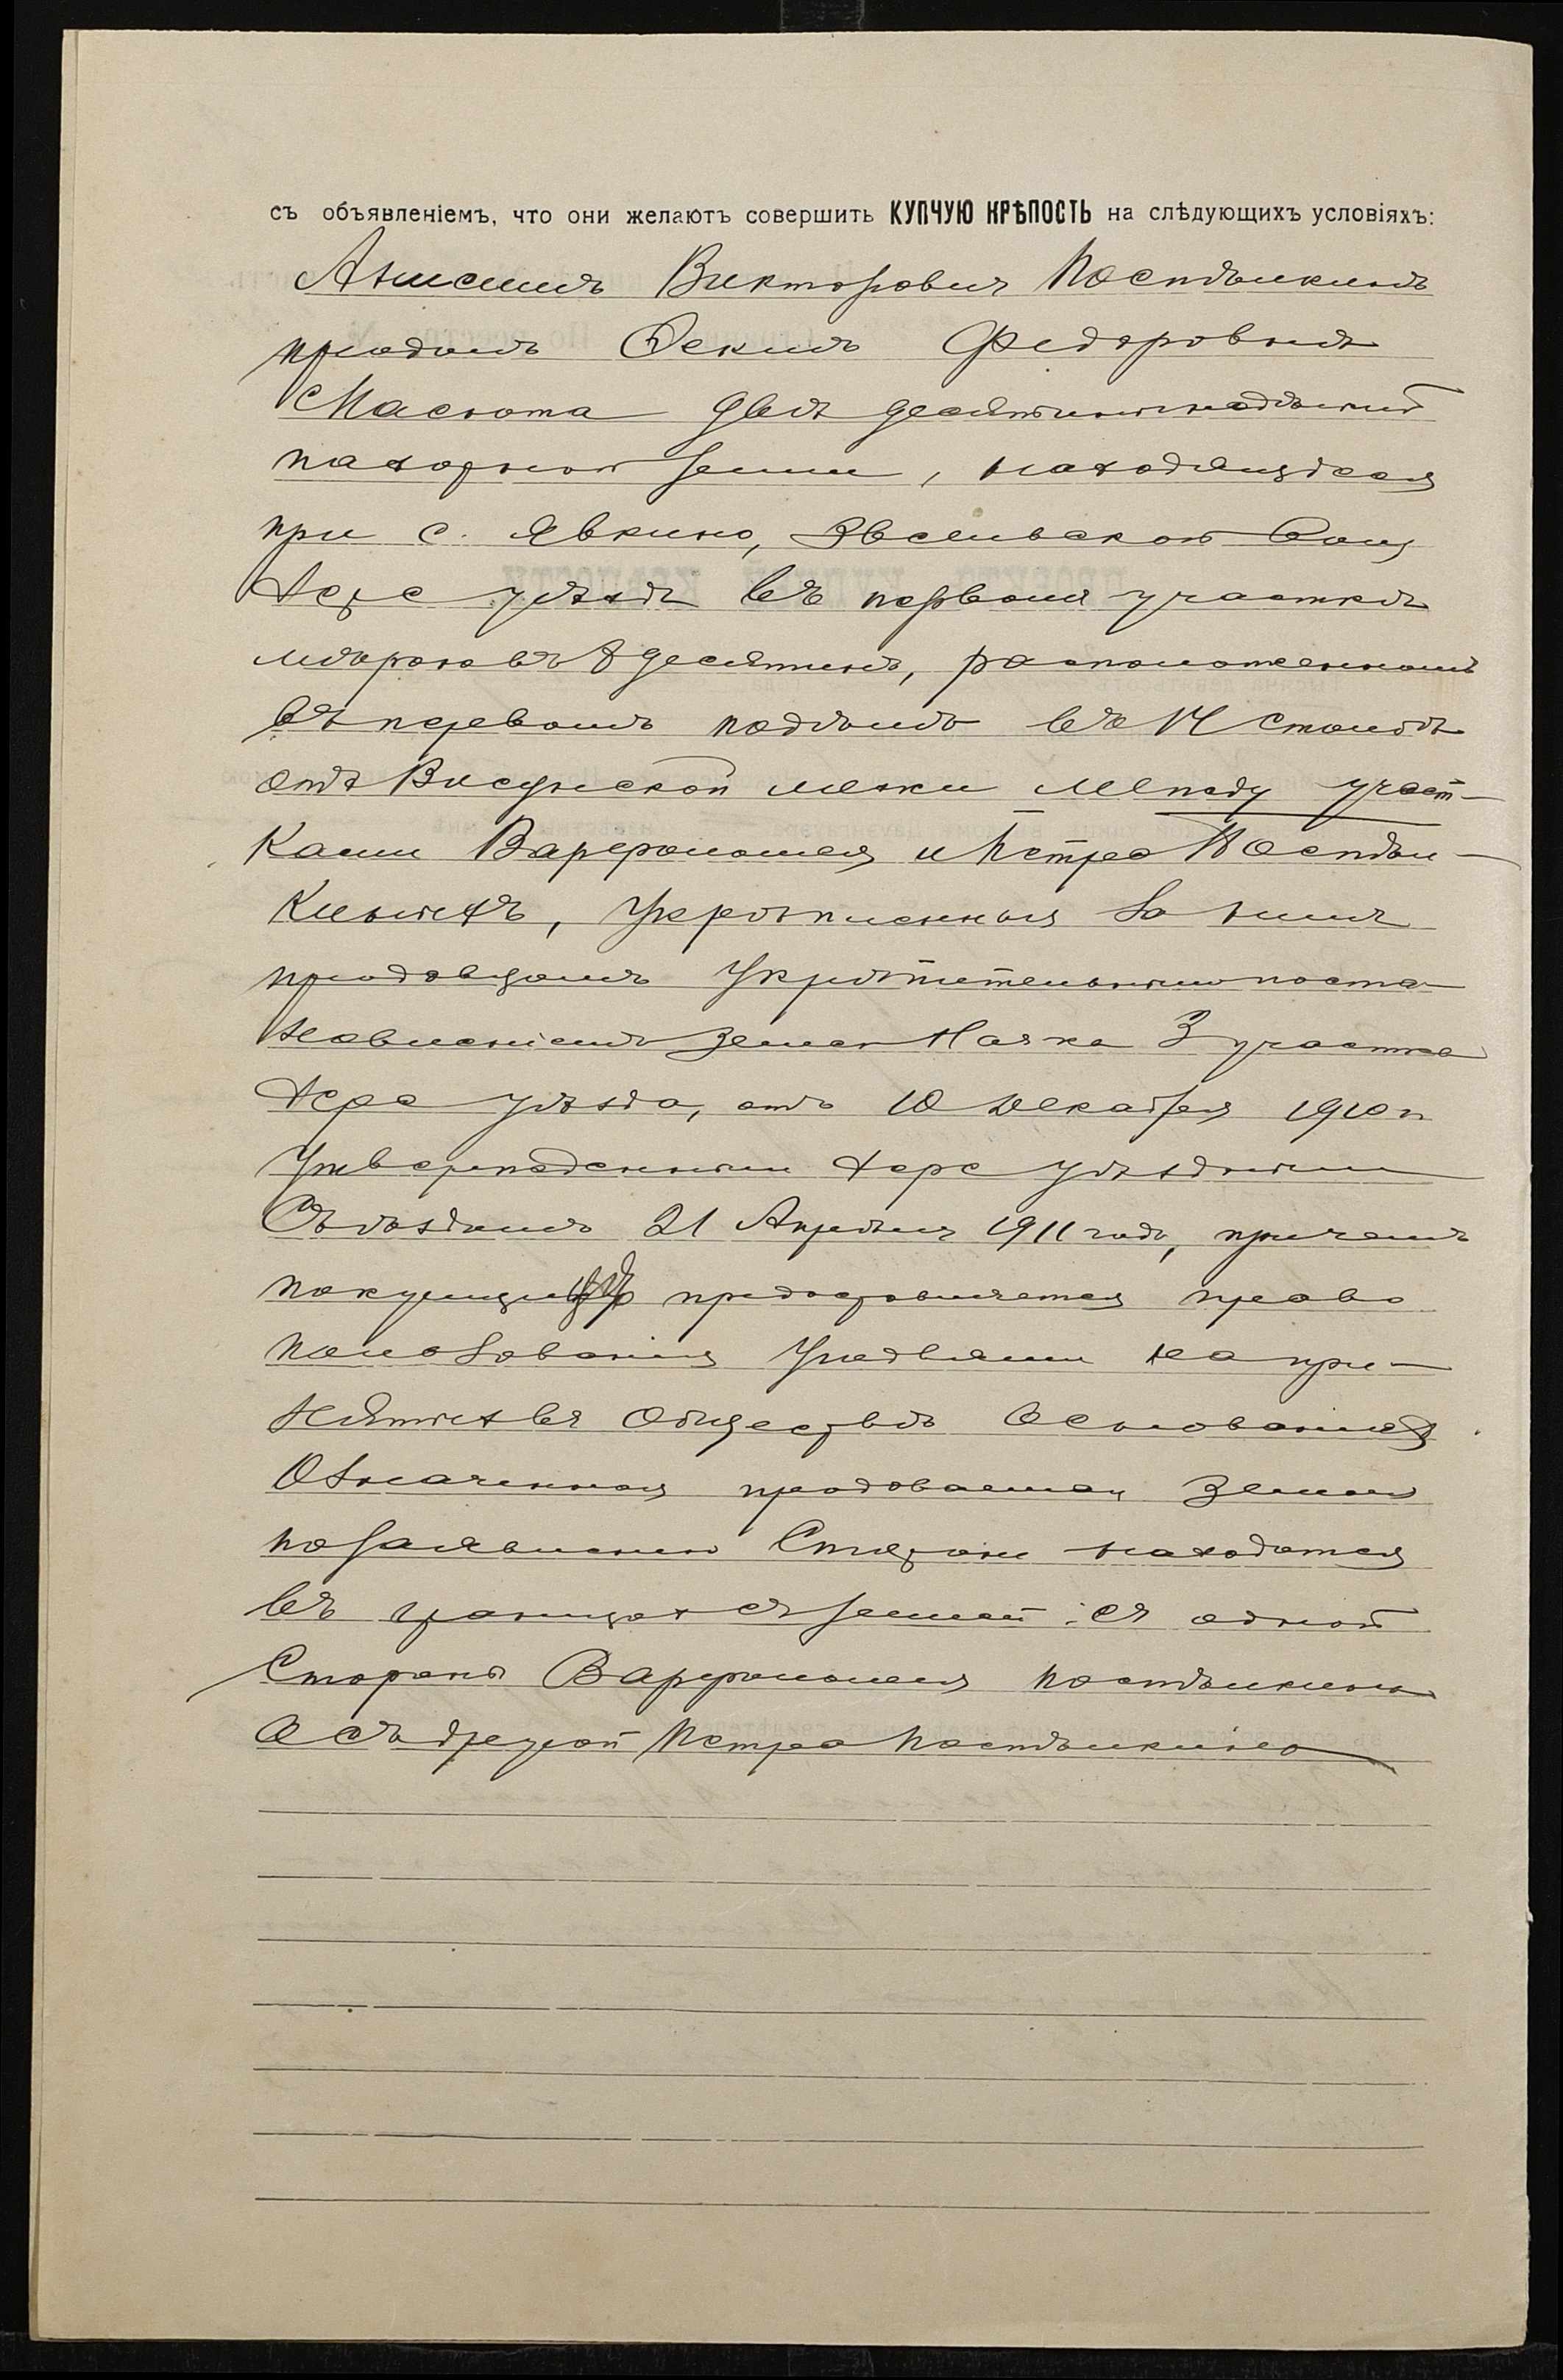 съ объявленіемъ, что они желаютъ совершить КУПЧУЮ КРѢПОСТЬ на слѣдующихъ условіяхъ:
Анисимъ Викторовичъ Поспѣлкинъ
продалъ Екимъ Федоровнѣ
Масюта двѣ десятины надѣльной
пахорной земли, находящѣеся
при с. Явкино, Явкинской вол
Херс уѣздѣ въ первомъ участкѣ
мѣрою въ 8 десятинъ, расположенномъ
въ первомъ подѣлѣ въ 14 столбѣ
отъ Висунской межи между участ-
ками Варфоломея и Петра Поспѣл-
киныхъ, укрѣпленныя за нимъ
продавцомъ укрѣпительнымъ поста-
новленіемъ Земск Нач-ка 3 участка
Херс уѣзда, отъ 10 декабря 1910 г
утвержденнымъ Херс уѣзднымъ
Съѣздомъ 21 Апрѣля 1911 года, причемъ
предоставляется право
пользованія угодьями на при-
нятыхъ въ обществѣ основаніях
Означенная продоваемая земля
по заявленію Сторонъ находится
въ границахъ съ землей: съ одной
Стороны Варфоломея Поспѣлкина
а съ другой Петра Поспѣлкина